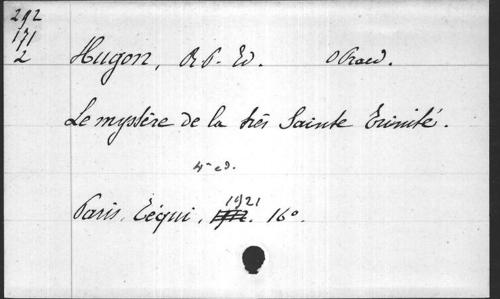 292
171
2
Hugon, R. P. Ed. O Praed.
Le mystère de la très Sainte Trinité.
4e ed.
1921
Paris, Téqui, 16o.